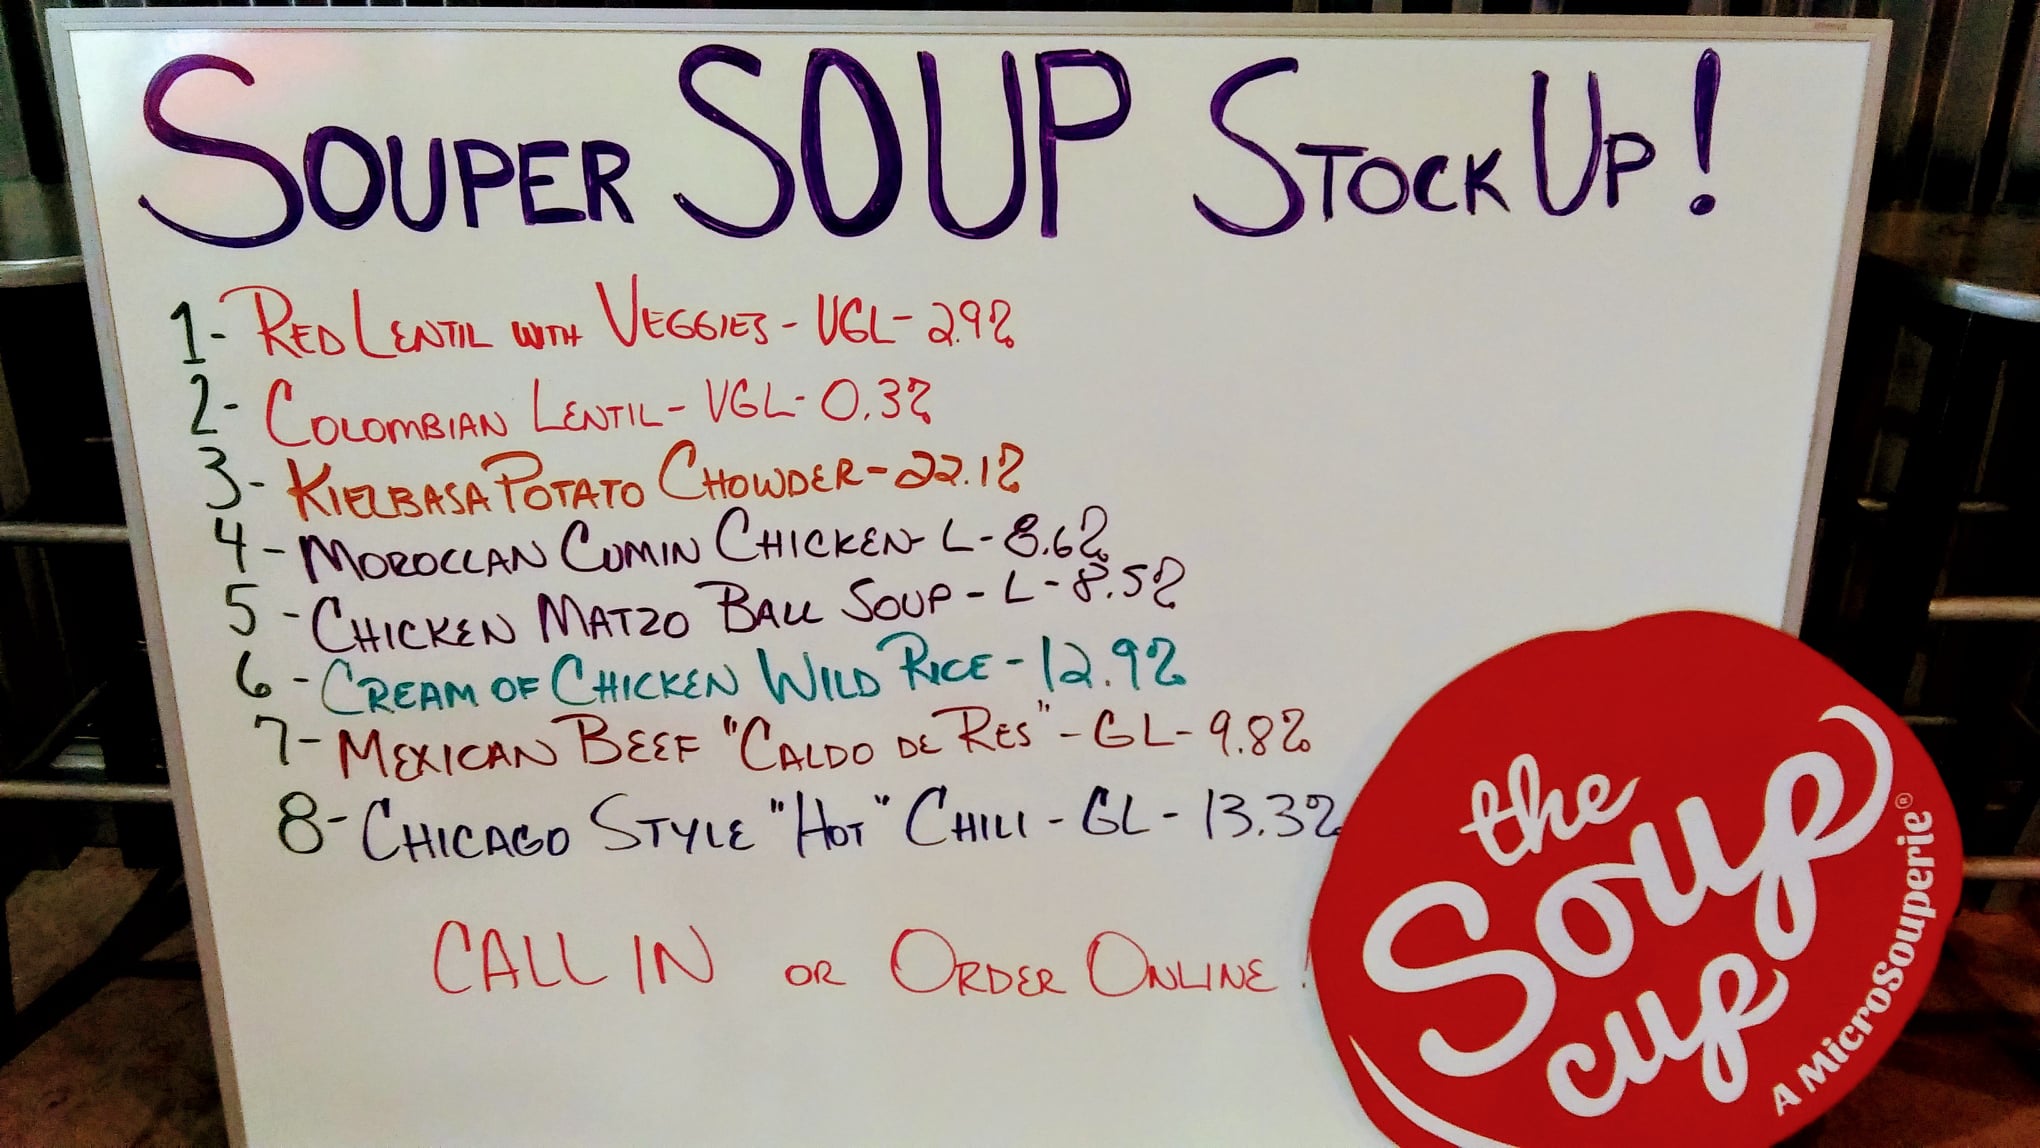 SOUPER SOUP STOCK UP!
1- RED LENTIL WITH VEGGIES - VGL - 2.9%
2- COLOMBIAN LENTIL - VGL - 0.3%
3- KIELBASA POTATO CHOWDER - 22.1%
4- MOROCCAN CUMIN CHICKEN - L - 8.6%
5- CHICKEN MATZO BALL SOUP - L - 8.5%
6- CREAM OF CHICKEN WILD RICE - 12.9%
7- MEXICAN BEEF "CALDO DE RES" - GL - 9.8%
8- CHICAGO STYLE "HOT" CHILI - GL - 13.3%
CALL IN OR ORDER ONLINE!
the
Soup
cup
A MicroSouperie®